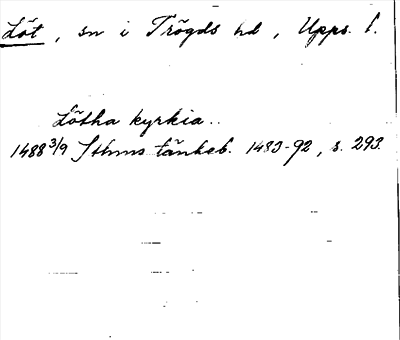 Löt, sn i Trögds hd, Upps. l.
Lötha kyrkia..
1488 3/9 Sthms tänkeb. 1483-92, s. 293.